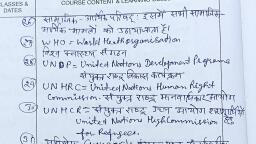 CLASSES & DATES
COURSE CONTENT & LEARNING
26 सामाजिक-आर्थिक परिषद : इसमें सभी सामाजिक-
आर्थिक मामलों को उठाया जाता है।
27 WHO = World Heath organisation
विश्व स्वास्थ्य संगठन
28 UNDP = United Nations Development Programe
संयुक्त राष्ट्र विकास कार्यक्रम
29 UNHRC = United Nations Human Right
Commission. संयुक्त राष्ट्र मानवाधिकार आयोग
30 UNHCR = संयुक्त राष्ट्र उच्च आयोग शरणार्थी
United Nations High Commission
for Refugees.
31